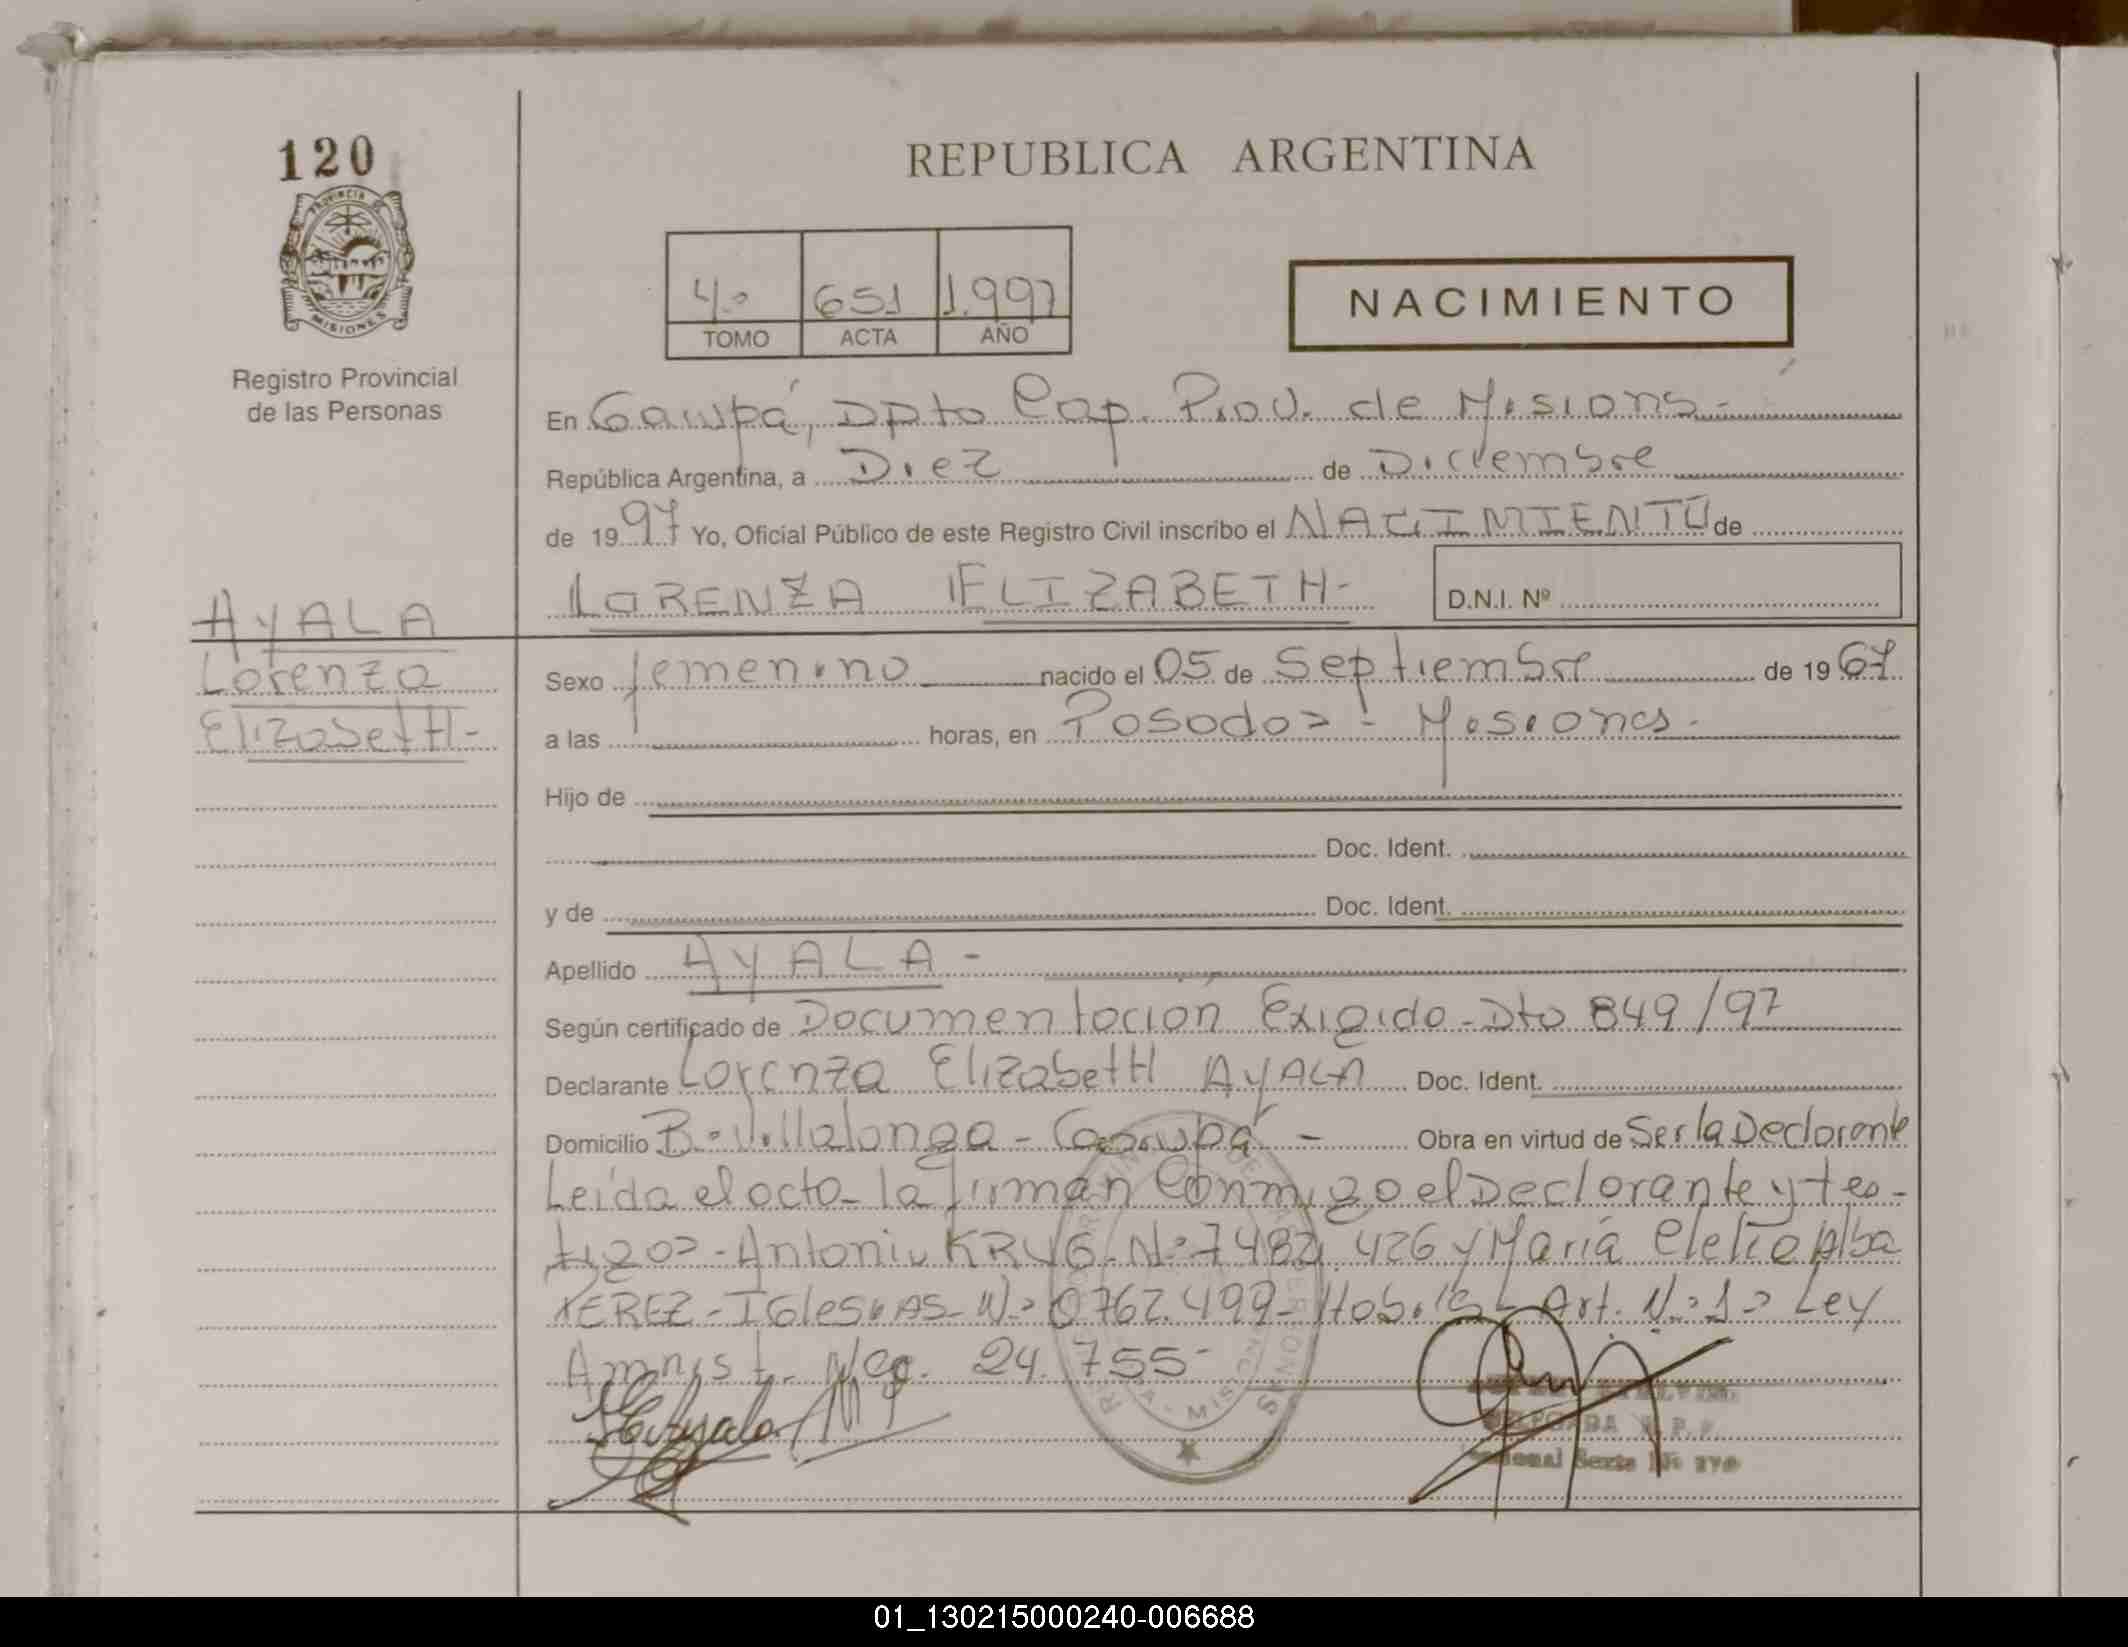 120
REPUBLICA ARGENTINA
PROVINCIA DE
MISIONES
4º 651 1.997
TOMO ACTA AÑO
NACIMIENTO
Registro Provincial
de las Personas
En Garupá, Dpto Cap. Prov. de Misions-
República Argentina, a Diez de Diciembre
de 1997 Yo, Oficial Público de este Registro Civil inscribo el NACIMIENTO de
LORENZA ELIZABETH-
D.N.I. Nº
AYALA
Lorenza
Elizabeth-
Sexo femenino nacido el 05 de Septiembre de 1967
a las horas, en Posadas - Misiones.
Hijo de
Doc. Ident.
y de Doc. Ident.
Apellido AYALA -
Según certificado de Documentación Exigida - Dto 849/97
Declarante Lorenza Elizabeth AYALA Doc. Ident.
Domicilio Bº Villalonga - Garupá - Obra en virtud de Ser la Declarante
Leida el acta - la firman Conmigo el Declarante y tes-
tigos - Antonio KRUG - Nº 7482.426 y María Clelia Alba
XEREZ - IGlesiAS - Nº 0762.499 - Art. Nº 1º Ley
Amnist. Nac. 24.755-
MISIONES
01_130215000240-006688